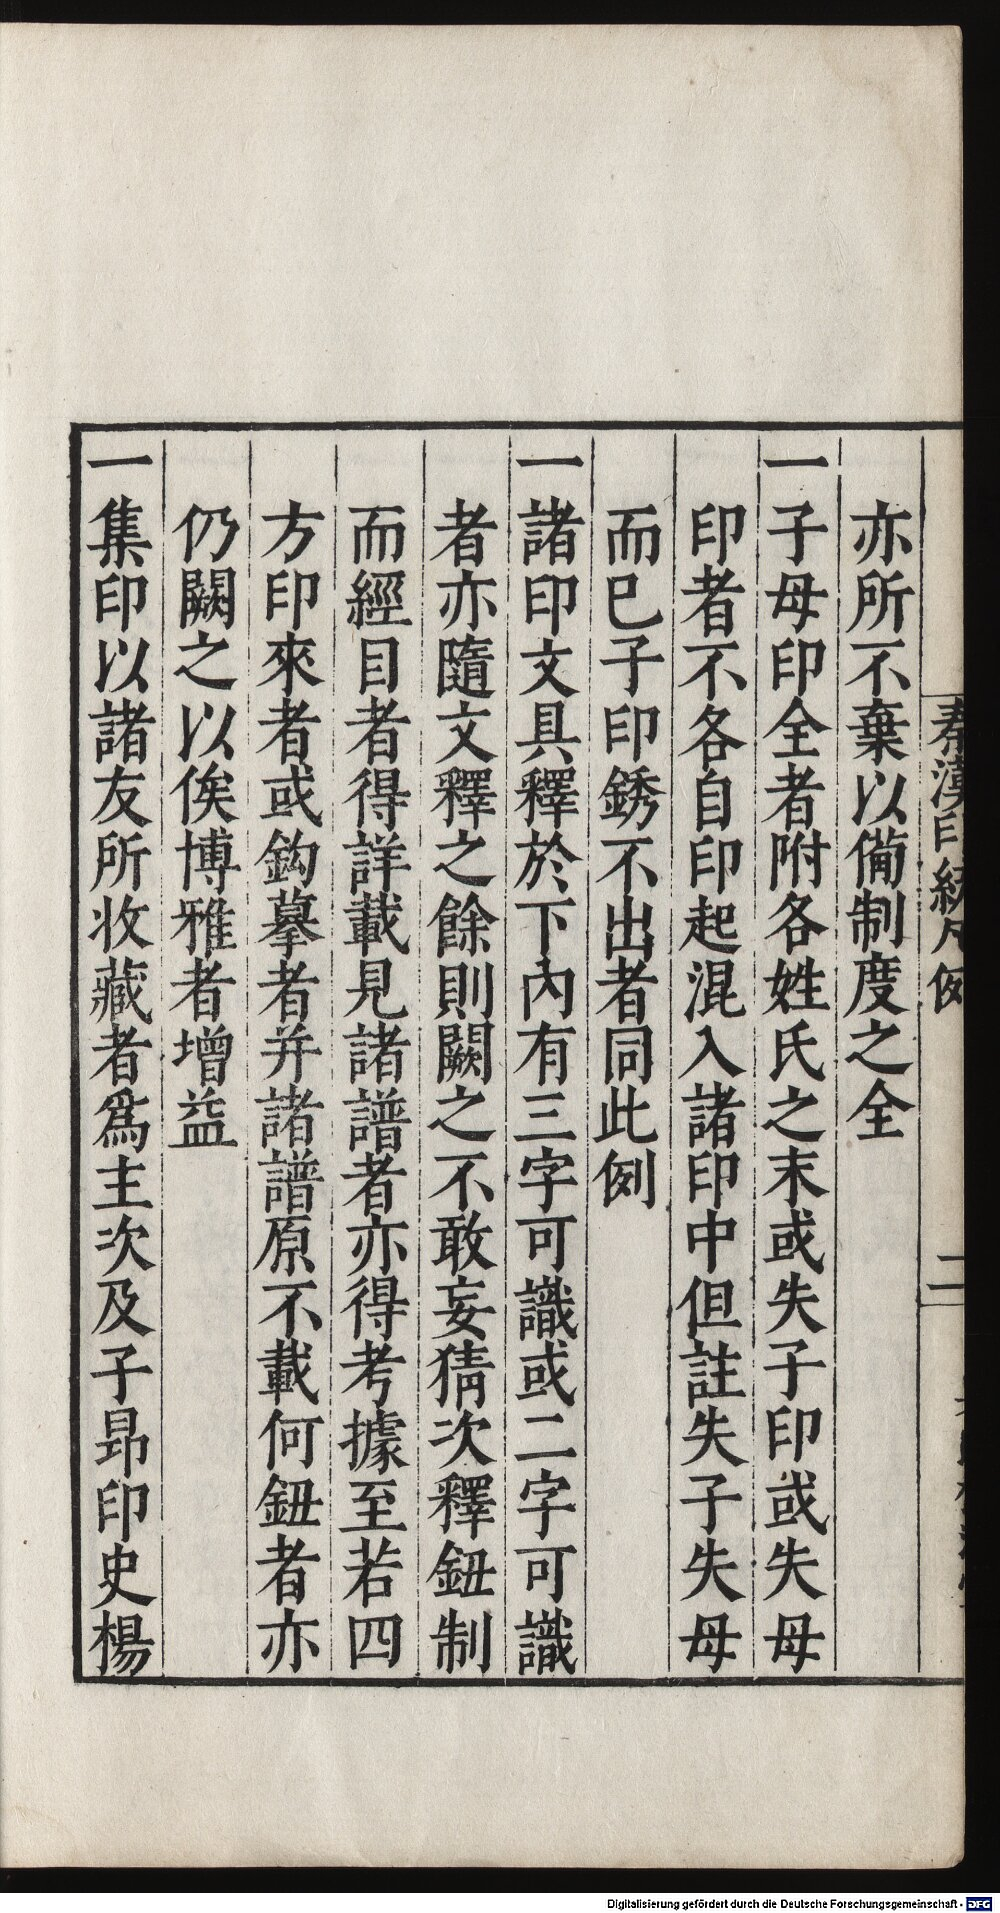 秦漢印統凡例
二
亦所不棄以備制度之全
一子母印全者附各姓氏之末或失子印或失母
印者不各自印起混入諸印中但註失子失母
而已子印銹不出者同此例
一諸印文具釋於下內有三字可識或二字可識
者亦隨文釋之餘則闕之不敢妄猜次釋鈕制
而經目者得詳載見諸譜者亦得考據至若四
方印來者或鈎摹者并諸譜原不載何鈕者亦
仍闕之以俟博雅者增益
一集印以諸友所收藏者爲主次及子昻印史楊
Digitalisierung gefördert durch die Deutsche Forschungsgemeinschaft - DFG